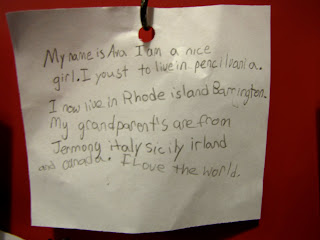 My name is Ava I am a nice
girl. I youst to live in pencilvania.
I now live in Rhode island Barrington.
My grandparent's are from
Jermony italy sicily irland
and canada. I Love the world.